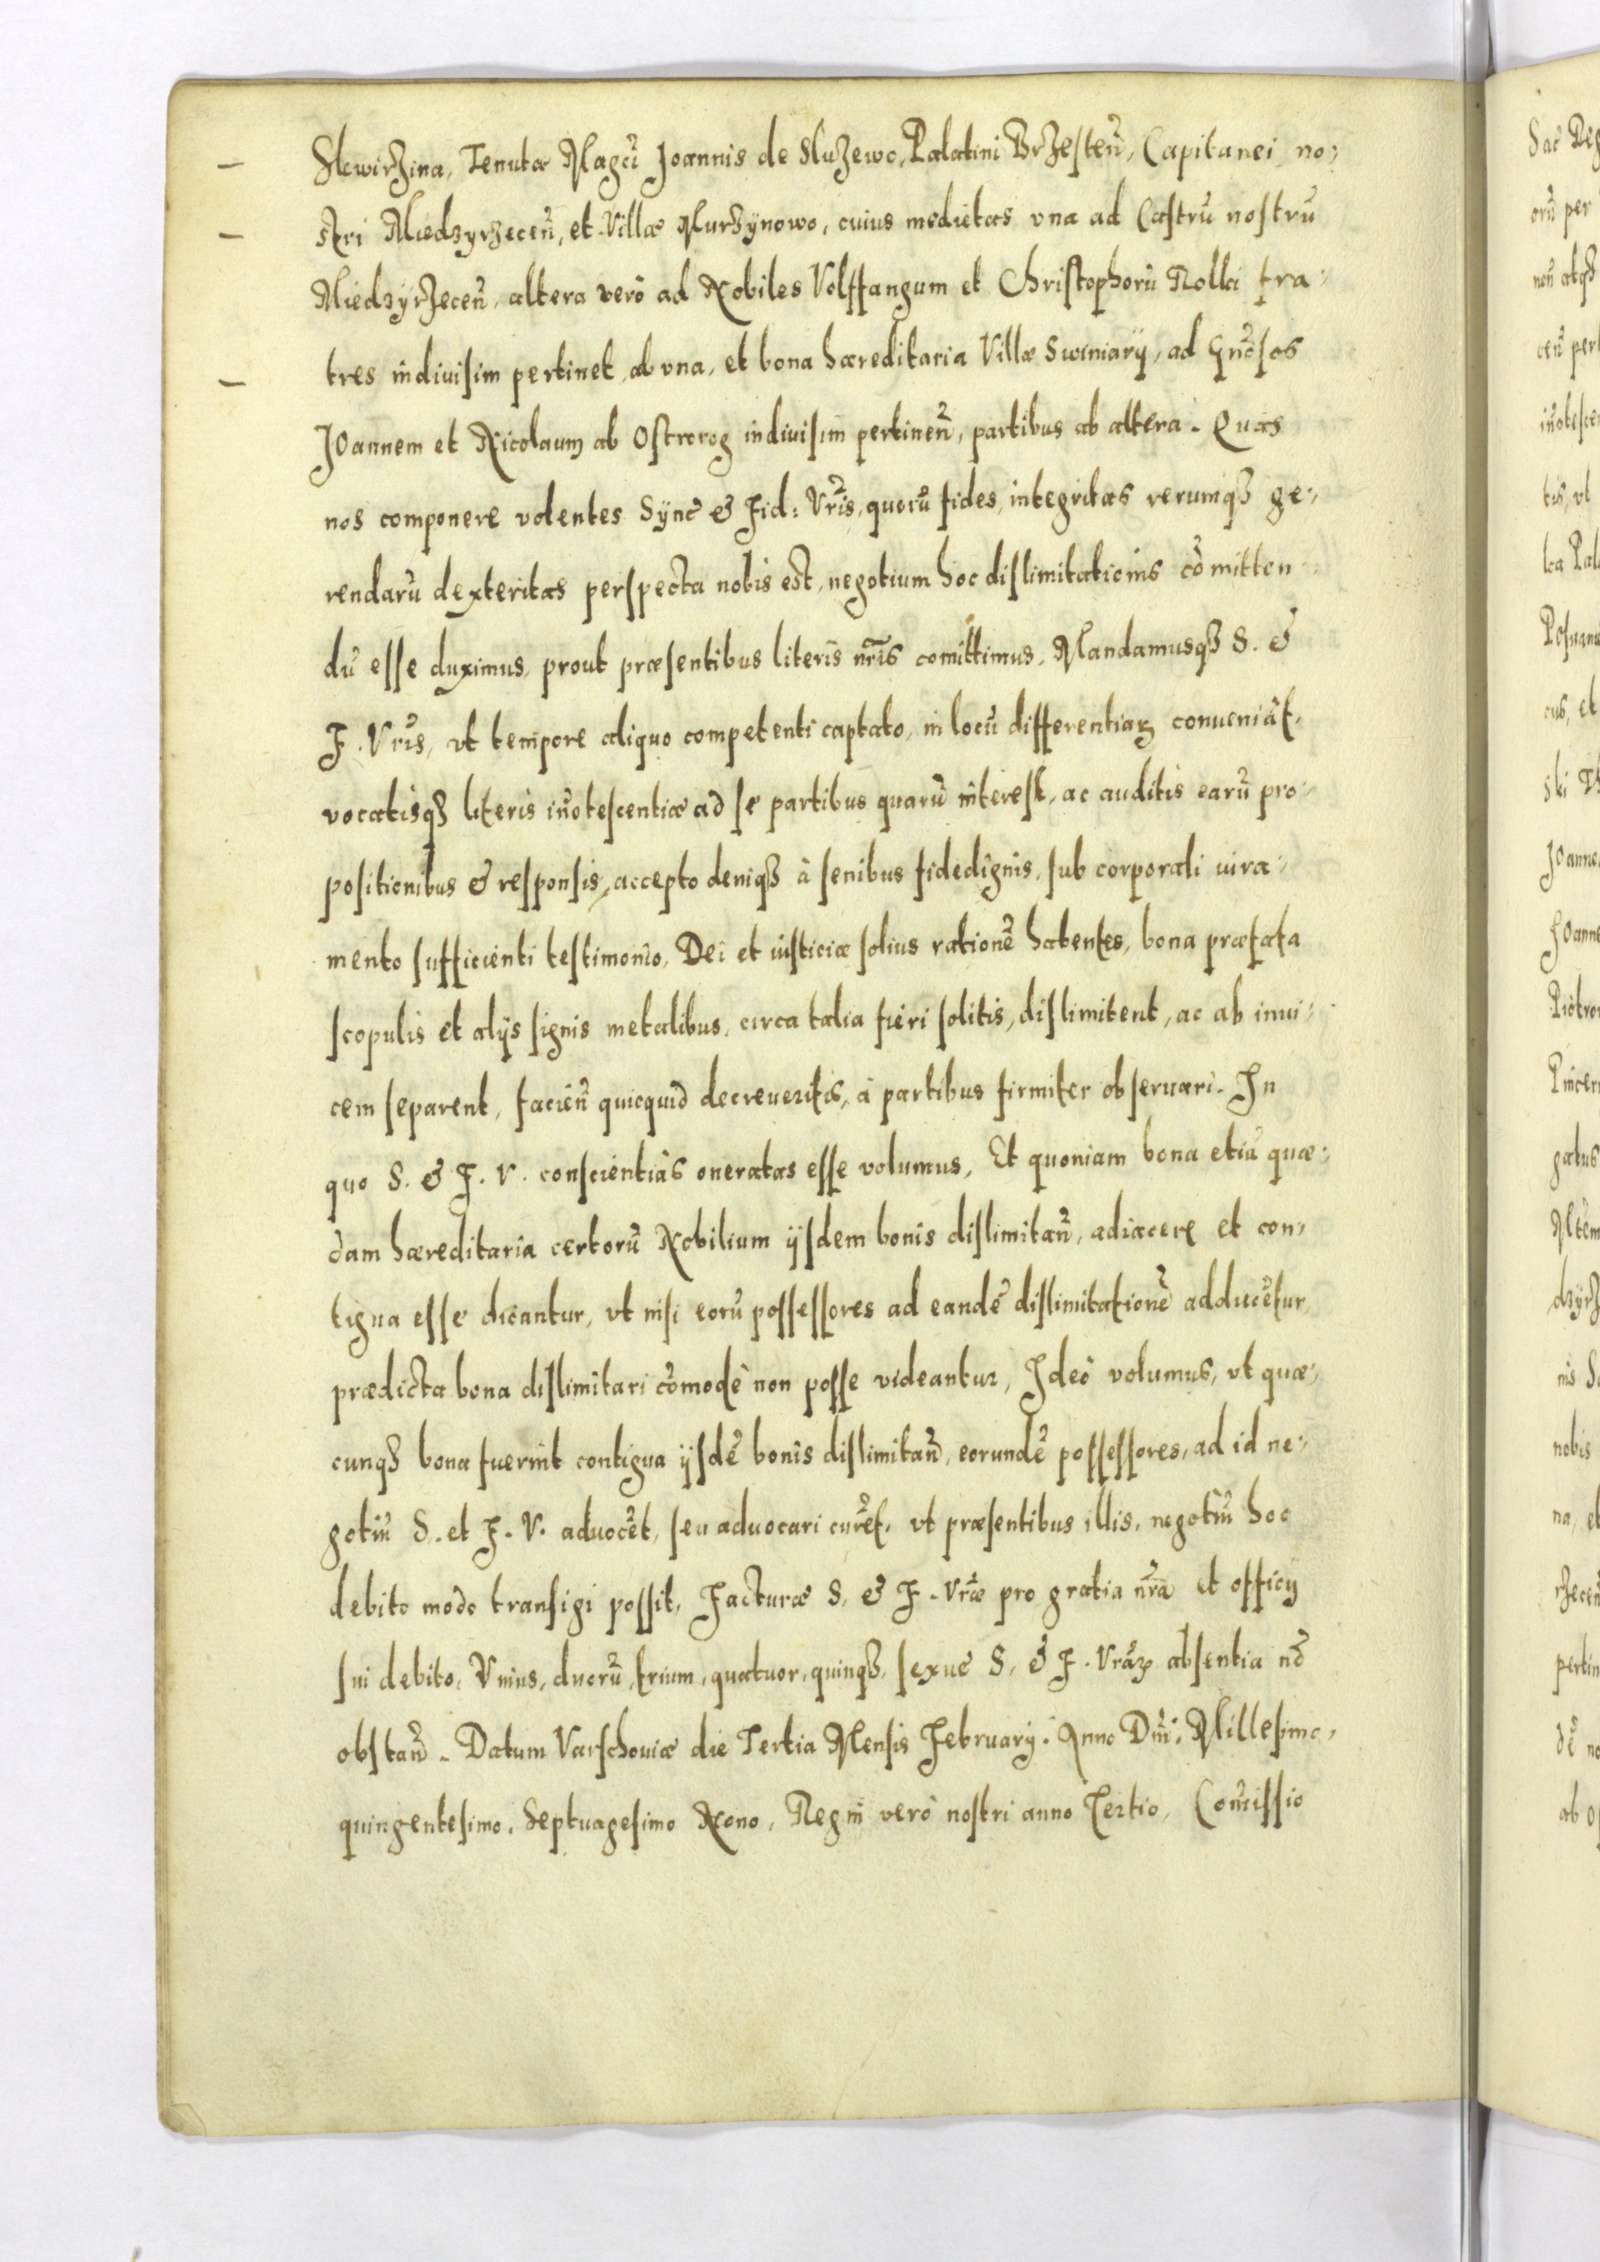 Skwirzina, Tenutæ Magci Joannis de Sluzewo, Palatini Brzesteñ, Capitanei no:
stri Miedzyrzeceñ, et Villæ Murzÿnowo, cuius medietas vna ad Castrũ nostrũ
Miedzÿrzeceñ, altera verò ad Nobiles Volffangum et Christophorũ Nolki fra:
tres indiuisim pertinet, ab vna, et bona hæreditaria Villæ Swiniarÿ, ad Gñosos
JOannem et Nicolaum ab Ostrorog indiuisim pertineñ, partibus ab altera. Quas
nos componere volentes Sÿnc̃ & Fid: Vr̃is, quorũ fides, integritas rerumqȝ ge:
rendarũ dexteritas perspecta nobis est, negotium hoc dislimitationis cõmitten:
dũ esse duximus, prout præsentibus literis nr̃is comittimus, Mandamusqȝ S. &
F. Vr̃is, vt tempore aliquo competenti captato, in locũ differentiaꝝ conueniãt,
vocatisqȝ literis iñotescentiæ ad se partibus quarũ interest, ac auditis earũ pro:
positionibus & responsis, accepto deniqȝ à senibus fidedignis, sub corporali iura:
mento sufficienti testimonio, Dei et iusticiæ solius rationẽ habentes, bona præfata
scopulis et alÿs signis metalibus, circa talia fieri solitis, dislimitent, ac ab inui:
cem separent, facieñ quicquid decreueritis, à partibus firmiter obseruari. In
quo S. & F. V. conscientiàs oneratas esse volumus, Et quoniam bona etiã quæ:
dam hæreditaria certorũ Nobilium ÿsdem bonis dislimitañ, adiacere et con:
tigua esse dicantur, vt nisi eorũ possessores ad eandẽ dislimitationẽ adducẽtur,
prædicta bona dislimitari cõmodè non posse videantur, Ideò volumus, vt quæ:
cunqȝ bona fuerint contigua ÿsdẽ bonis dislimitañ, eorundẽ possessores, ad id ne:
gotiũ S. et F. V. aduocẽt, seu aduocari curẽt, vt præsentibus illis, negotiũ hoc
debito modo transigi possit, Facturæ S. & F. Vr̃æ pro gratia nr̃a et officÿ
sui debito, Vnius, duorũ, trium, quatuor, quinqȝ, sexuè S. & F. Vrãꝝ absentia nõ
obstañ. Datum Varschouiæ die Tertia Mensis Februarÿ. Anno Dñi. Millesimo,
quingentesimo, Septuagesimo Nono, Regni verò nostri anno Tertio, Comissio